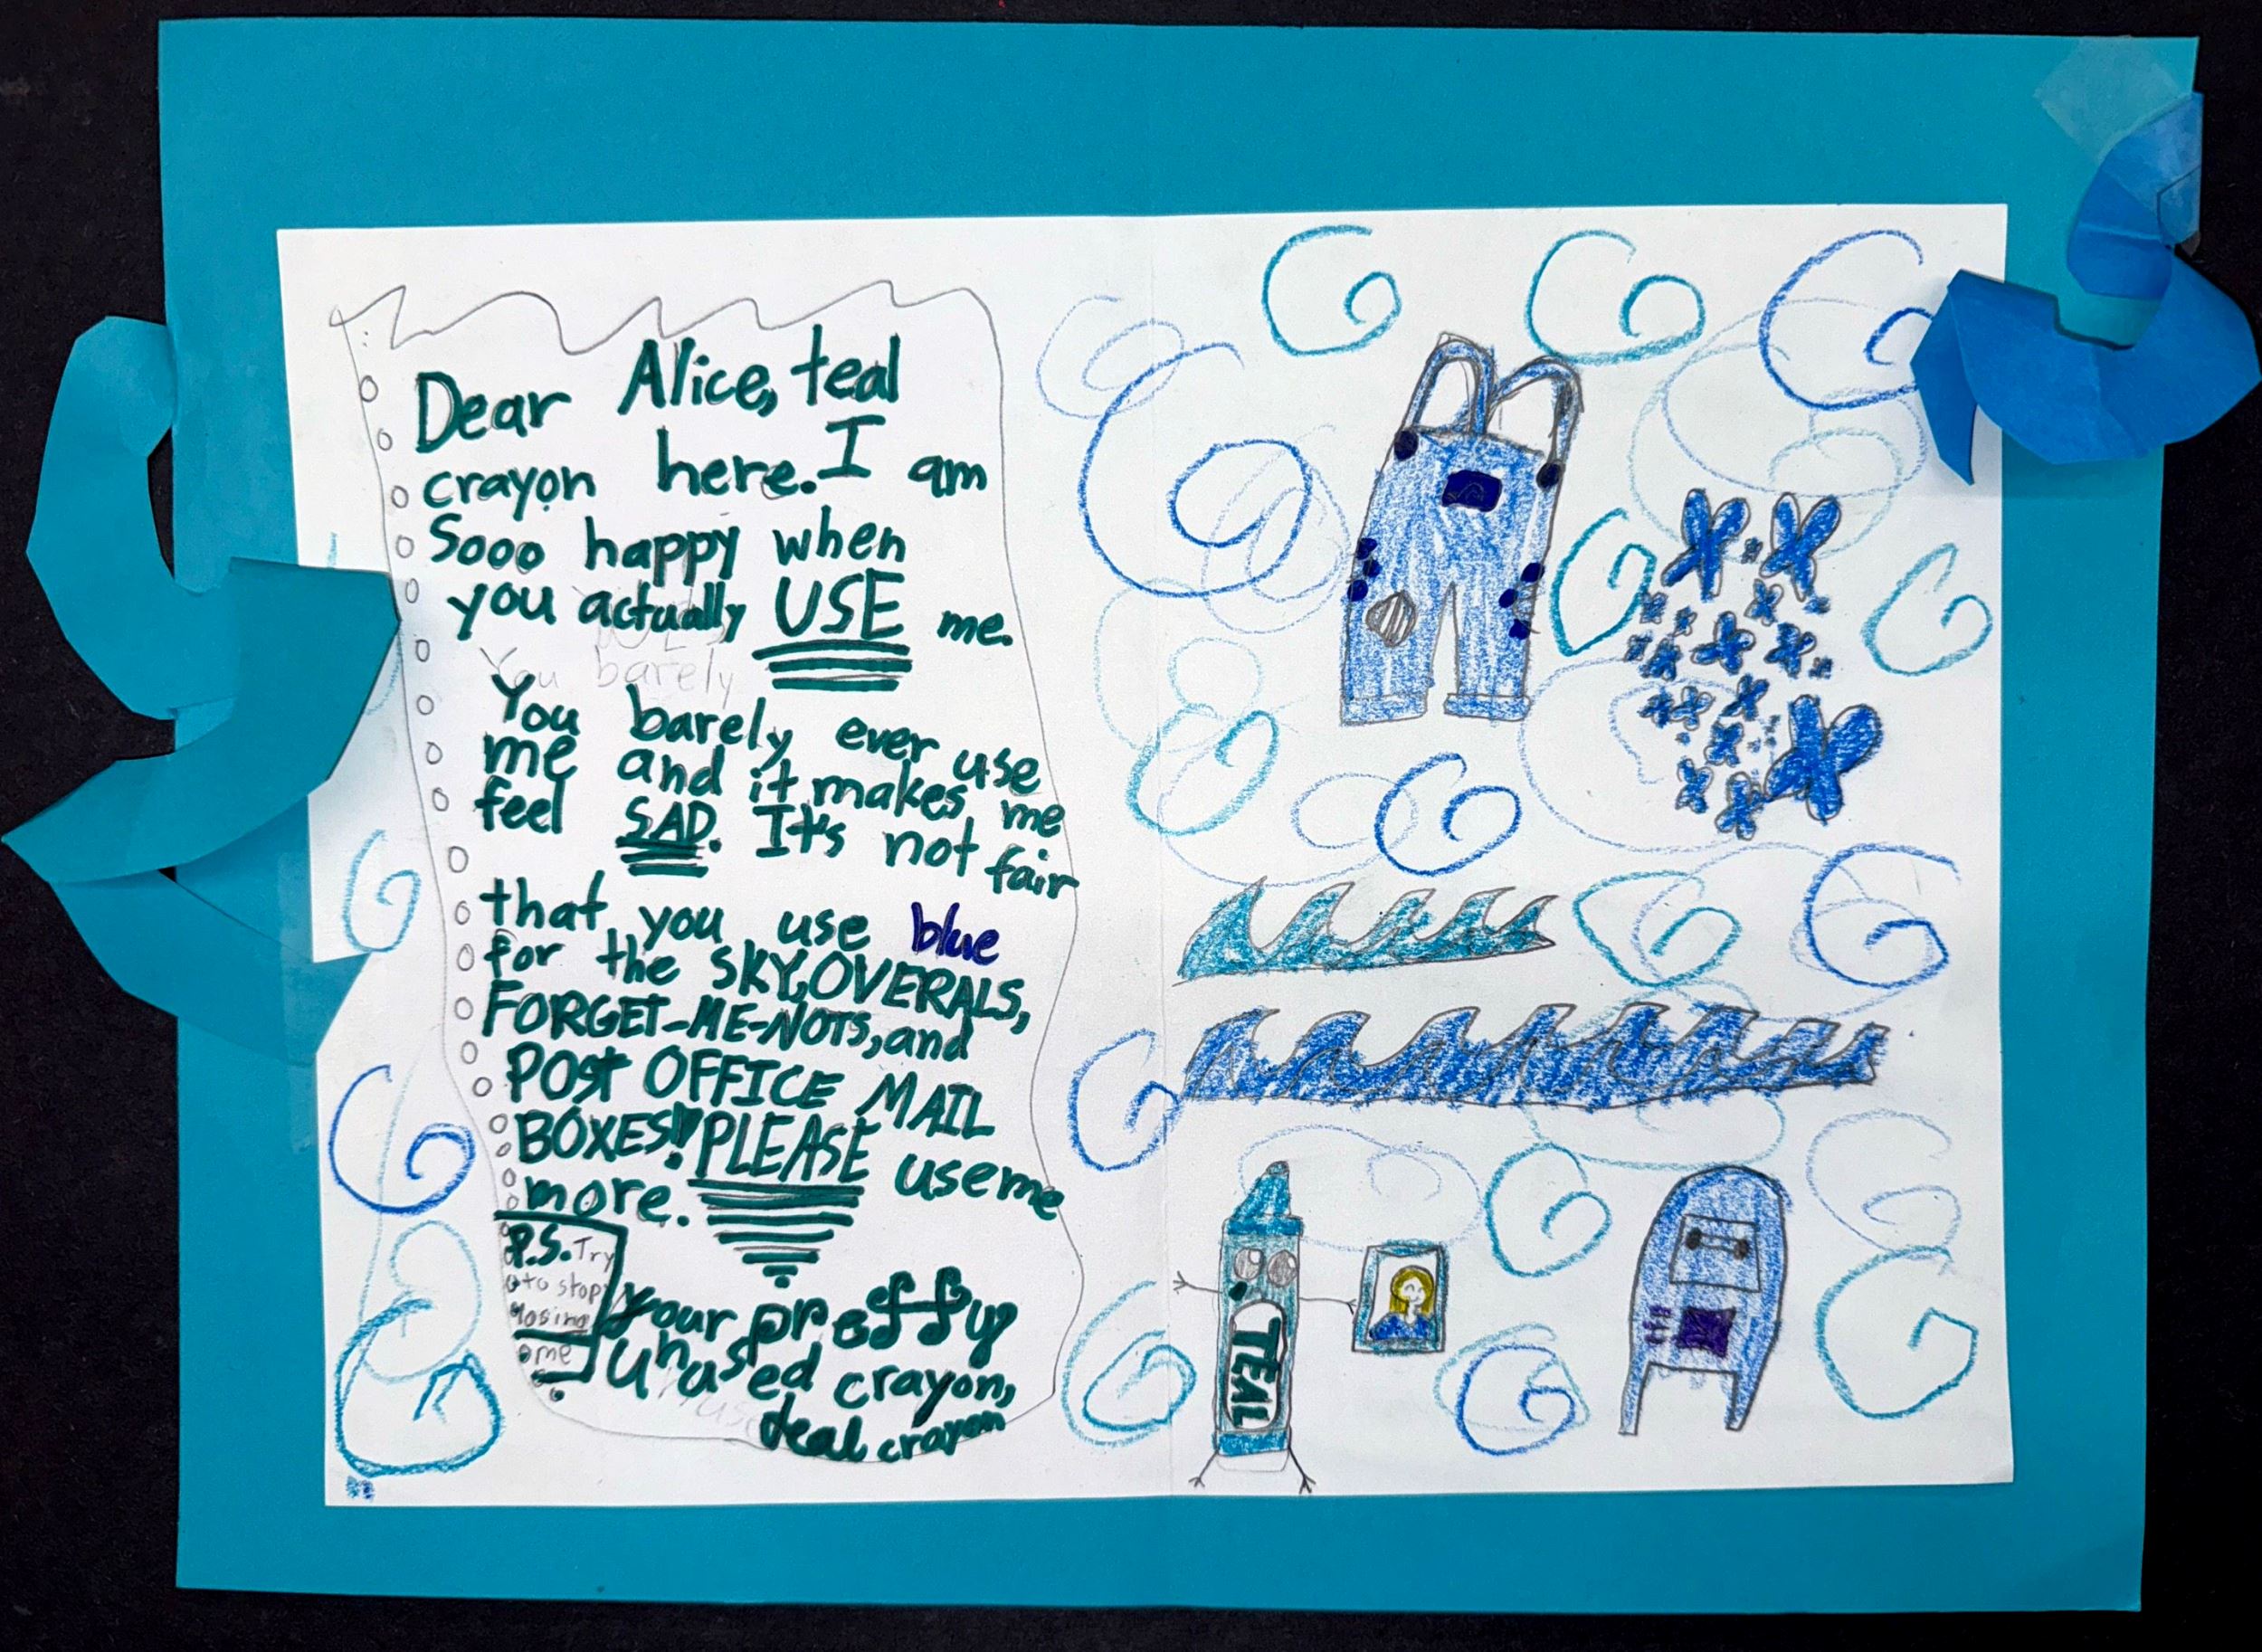 Dear Alice, teal
crayon here. I am
Sooo happy when
you actually USE me.
You barely
You barely ever use
me and it makes me
feel SAD. It's not fair
that you use blue
for the SKY, OVERALS,
FORGET-ME-NOTS, and
POST OFFICE MAIL
BOXES!! PLEASE use me
more.
P.S. Try
to stop
losing
me
Your pretty
unused crayon,
teal crayon
TEAL